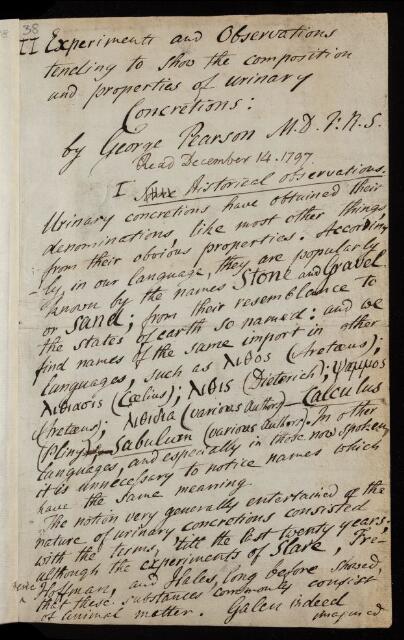 38
II Experiments and Observations
tending to show the composition
and properties of urinary
Concretions:
by George Pearson M.D. F.R.S.
Read December 14. 1797.
I Historical observations.
Urinary concretions have obtained their
denominations, like most other things,
from their obvious properties. According
-ly, in our language, they are popularly
known by the names Stone and Gravel
or Sand; from their resemblance to
the states of earth so named: and we
find names of the same import in other
languages, such as λιθος (Aretæus);
λιθιασις (Cælius); λιθις (Dieterich); ψαμμος
(Aretæus); λιθιδια (various Authors) Calculus
(Pliny), Sabulum (various Authors). In other
languages, and especially in those now spoken,
it is unnecessary to notice names which
have the same meaning.
The notion very generally entertained of the
nature of urinary concretions consisted
with the terms, 'till the last twenty years;
although the experiments of Slare, Fre-
Hoffman, and Hales, long before shewed,
that these substances commonly consist
of animal matter. Galen indeed
imagined